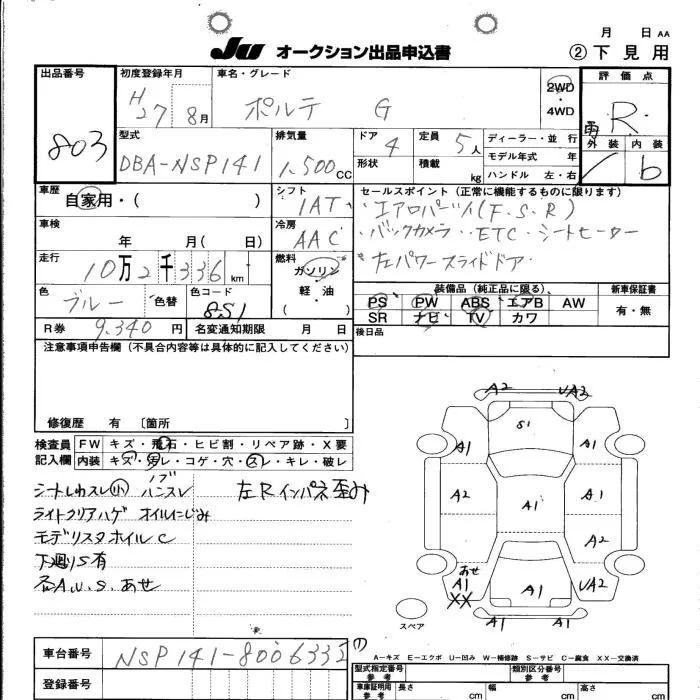 月 日 AA
JU オークション出品申込書 ②下見用
出品番号 初度登録年月 車名・グレード 評価点
803 H27 8月 ポルテ G 2WD・4WD R
型式 排気量 ドア 定員 ディーラー・並行 外装 内装
DBA-NSP141 1,500CC 4 5人 b
形状 積載 kg モデル年式 年
ハンドル 左・右
車歴 自家用・( ) シフト 1AT セールスポイント(正常に機能するものに限ります)
エアロパーツ(F.S.R)
車検 年 月( 日) 冷房 AAC バックカメラ ETC シートヒーター
走行 10万2千336km 燃料 ガソリン・軽油 ( ) 左パワースライドドア
色 ブルー 色替 色コード 8S1 装備品(純正品に限る) 新車保証書
PS PW ABS エアB AW 有・無
SR ナビ TV カワ
R券 9,340円 名変通知期限 月 日 後日品
注意事項申告欄(不具合内容等は具体的に記入してください)
修復歴 有 〔箇所 〕
検査員 FW キズ・飛石・ヒビ割・リペア跡・X要
記入欄 内装 キズ・汚レ・コゲ・穴・スレ・キレ・破レ
シートしわスレ小 ノブハンスレ 左Rインパネ歪み
ライトクリアハゲ オイルにじみ
モデリスタホイルC
下廻りS有
各A.U.S.あせ
A2 UA2
S1
A1 A1
A2 A1 A1
A2
あせ
A1 A1 UA2
XX
A1 A1
スペア
A-キズ E-エクボ U-凹み W-補修跡 S-サビ C-腐食 XX-交換済
車台番号 NSP141-8006332
型式指定番号 参考 類別区分番号 参考
登録番号 車庫証明用 参考 長さ cm 幅 cm 高さ cm